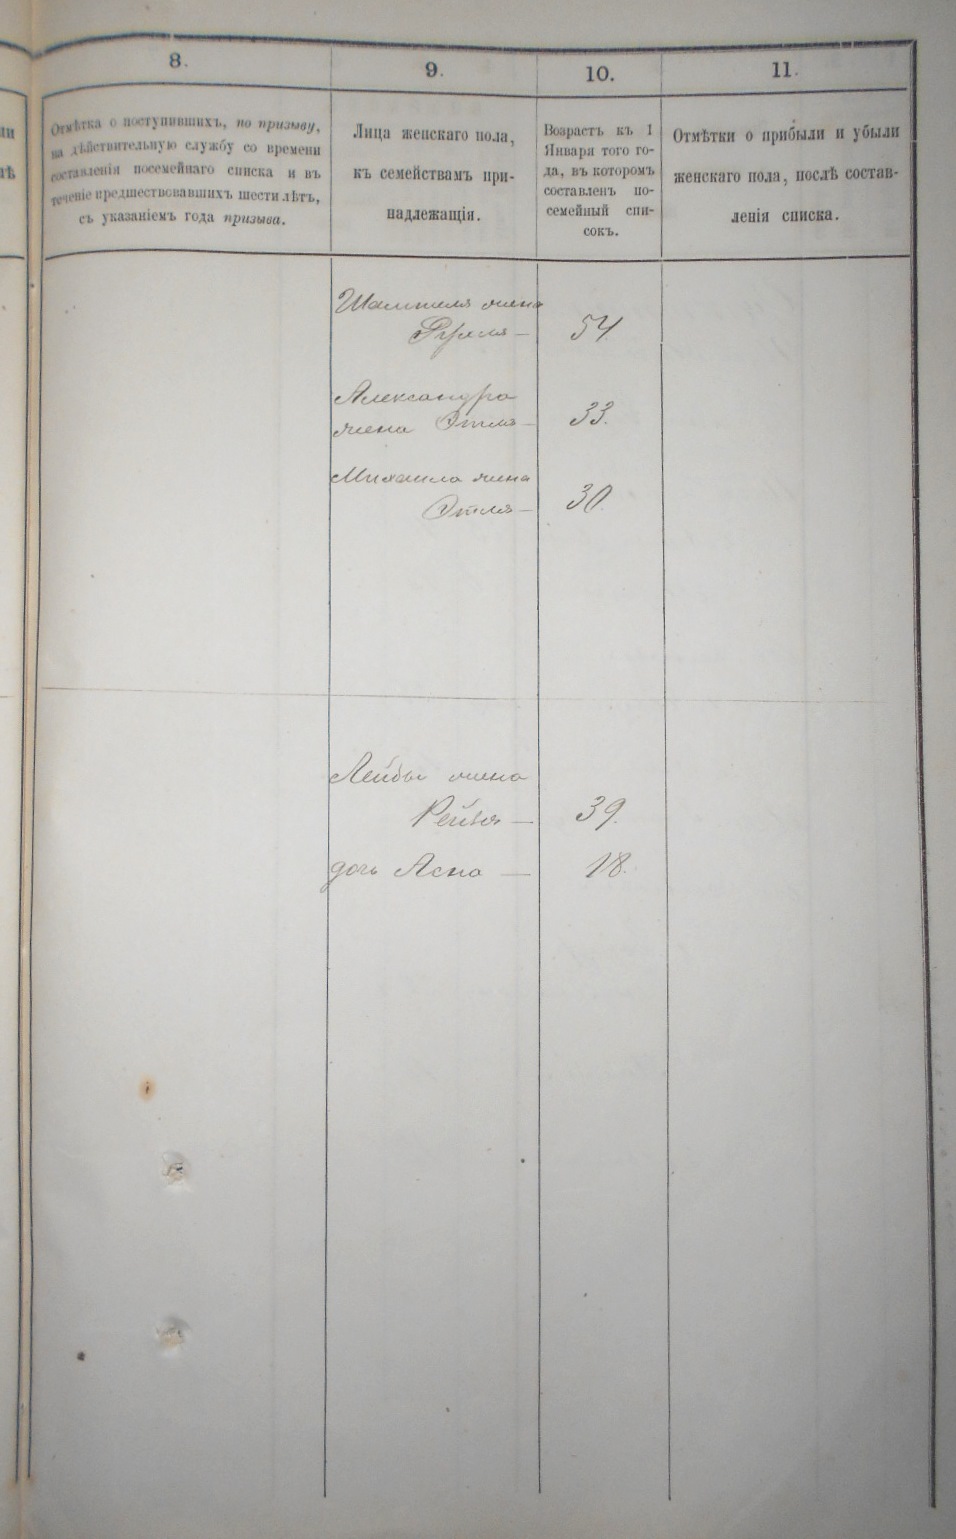 8.
9.
10.
11.
Отмѣтка о поступившихъ, по призыву,
на дѣйствительную службу со времени
составленія посемейнаго списка и въ
теченіе предшествовавшихъ шести лѣтъ,
съ указаніемъ года призыва.
Лица женскаго пола,
къ семействамъ при-
надлежащія.
Возрастъ къ 1
Января того го-
да, въ которомъ
составленъ по-
семейный спи-
сокъ.
Отмѣтки о прибыли и убыли
женскаго пола, послѣ состав-
ленія списка.
жена
54
Александра
жена Этля — 33.
Михаила жена
Этля — 30.
Лейбы жена
Рейзя — 39.
дочь Асна — 18.